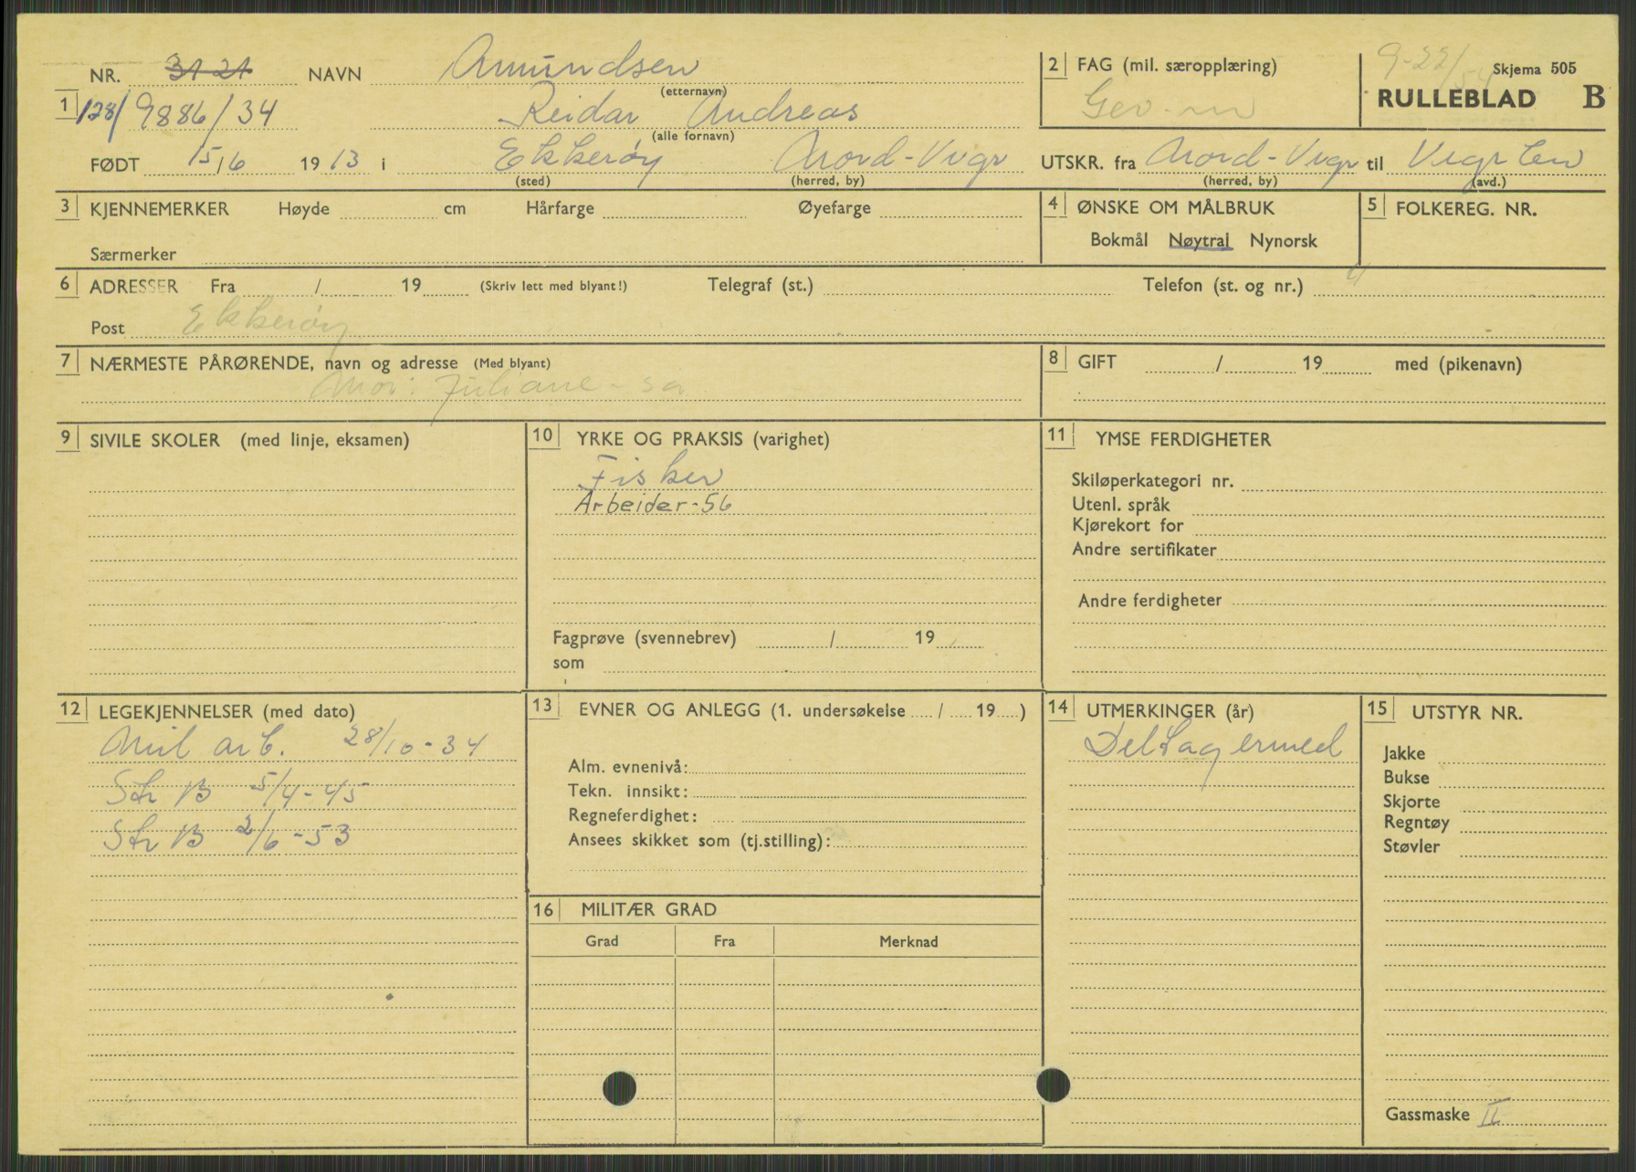 NR. 3121 NAVN Amundsen
(etternavn)
1 128/9886/34 Reidar Andreas
(alle fornavn)
FØDT 15/6 1913 i Ekkerøy Nord-Vvgr
(sted) (herred, by)
2 FAG (mil. særopplæring)
Gev.
9-22/54 Skjema 505
RULLEBLAD B
UTSKR. fra Nord-Vvgr til
(herred, by) (avd.)
3 KJENNEMERKER Høyde cm Hårfarge Øyefarge
Særmerker
4 ØNSKE OM MÅLBRUK
Bokmål Nøytral Nynorsk
5 FOLKEREG. NR.
6 ADRESSER Fra / 19 (Skriv lett med blyant!) Telegraf (st.) Telefon (st. og nr.)
Post Ekkerøy
7 NÆRMESTE PÅRØRENDE, navn og adresse (Med blyant)
Mor: Juliane - sa
8 GIFT / 19 med (pikenavn)
9 SIVILE SKOLER (med linje, eksamen)
10 YRKE OG PRAKSIS (varighet)
Fisker
Arbeider-56
Fagprøve (svennebrev) / 19
som
11 YMSE FERDIGHETER
Skiløperkategori nr.
Utenl. språk
Kjørekort for
Andre sertifikater
Andre ferdigheter
12 LEGEKJENNELSER (med dato)
Mil arb. 28/10-34
Str B 5/4-45
Str B 2/6-53
13 EVNER OG ANLEGG (1. undersøkelse / 19 )
Alm. evnenivå:
Tekn. innsikt:
Regneferdighet:
Ansees skikket som (tj.stilling):
16 MILITÆR GRAD
Grad Fra Merknad
14 UTMERKINGER (år)
Deltagermed
15 UTSTYR NR.
Jakke
Bukse
Skjorte
Regntøy
Støvler
Gassmaske II